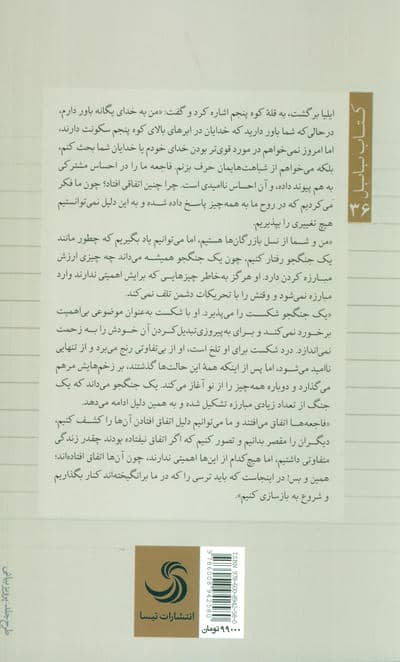 ایلیا برگشت، به قلهٔ کوه پنجم اشاره کرد و گفت: «من به خدای یگانه باور دارم،
درحالی‌که شما باور دارید که خدایان در ابرهای بالای کوه پنجم سکونت دارند،
اما امروز نمی‌خواهم در مورد قوی‌تر بودن خدای خودم یا خدایان شما بحث کنم،
بلکه می‌خواهم از شباهت‌هایمان حرف بزنم. فاجعه ما را در احساس مشترکی
به هم پیوند داده، و آن احساس ناامیدی است. چرا چنین اتفاقی افتاد؟ چون ما فکر
می‌کردیم که در روح ما به همه‌چیز پاسخ داده شده و به این دلیل نمی‌توانستیم
هیچ تغییری را بپذیریم.
«من و شما از نسل بازرگان‌ها هستیم، اما می‌توانیم یاد بگیریم که چطور مانند
یک جنگجو رفتار کنیم، چون یک جنگجو همیشه می‌داند چه چیزی ارزش
مبارزه کردن دارد. او هرگز به‌خاطر چیزهایی که برایش اهمیتی ندارند وارد
مبارزه نمی‌شود و وقتش را با تحریکات دشمن تلف نمی‌کند.
«یک جنگجو شکست را می‌پذیرد. او با شکست به‌عنوان موضوعی بی‌اهمیت
برخورد نمی‌کند و برای به‌پیروزی‌تبدیل‌کردن آن خودش را به زحمت
نمی‌اندازد. درد شکست برای او تلخ است، او از بی‌تفاوتی رنج می‌برد و از تنهایی
ناامید می‌شود، اما پس از اینکه همهٔ این حالت‌ها گذشتند، بر زخم‌هایش مرهم
می‌گذارد و دوباره همه‌چیز را از نو آغاز می‌کند. یک جنگجو می‌داند که یک
جنگ از تعداد زیادی مبارزه تشکیل شده و به همین دلیل ادامه می‌دهد.
«فاجعه‌ها اتفاق می‌افتند و ما می‌توانیم دلیل اتفاق افتادن آن‌ها را کشف کنیم،
دیگران را مقصر بدانیم و تصور کنیم که اگر اتفاق نیفتاده بودند چقدر زندگی
متفاوتی داشتیم، اما هیچ‌کدام از این‌ها اهمیتی ندارند، چون آن‌ها اتفاق افتاده‌اند؛
همین و بس! در اینجاست که باید ترسی را که در ما برانگیخته‌اند کنار بگذاریم
و شروع به بازسازی کنیم».
کتاب بالینی
۳۶
انتشارات تیسا
۹۹۰۰۰ تومان
طرح جلد: پرویز بیانی